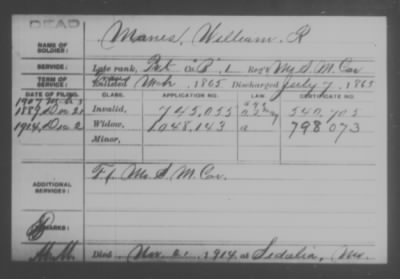 DEAD
NAME OF SOLDIER: Manes, William R
SERVICE: Late rank, Pvt Co. "B", 1 Reg't Mo S. M. Cav
TERM OF SERVICE: Enlisted Mch, 1865 Discharged July 7, 1865
DATE OF FILING. CLASS. APPLICATION NO. LAW. CERTIFICATE NO.
1907
1889 Dec 21 Invalid, 745,055 540,705
1914, Dec 2 Widow, 1,048,143 a 798 073
Minor,
ADDITIONAL SERVICES: F, Mo S M. Cav.
REMARKS:
Died Nov. 21, 1914, at Sedalia, Mo.